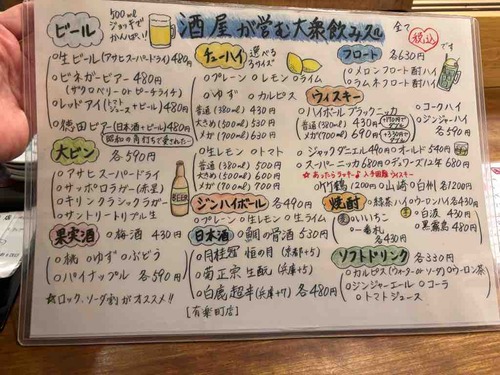 酒屋が営む大衆飲み処
全て税込です
ビール
500ml ジョッキでかんぱい!
○生ビール(アサヒスーパードライ)480円
○ビネガービアー 480円
(ザクロベリー or ピーチライチ)
○レッドアイ(トマトジュース+ビール)480円
○徳田ビアー(日本酒+ビール)480円
昭和の角打ちで愛された
大ビン 各590円
○アサヒスーパードライ
○サッポロラガー(赤星)
○キリンクラシックラガー
○サントリートリプル生
BEER
果実酒
○梅酒 430円
○桃 ○ゆず ○ぶどう
○パイナップル 各590円
☆ロック、ソーダ割がオススメ!!
チューハイ 選べる3サイズ
○プレーン ○レモン ○ライム
○ゆず ○カルピス
普通(380ml) 430円
大きめ(500ml) 530円
メガ(700ml) 630円
○生レモン ○トマト
普通(380ml) 500円
大きめ(500ml) 600円
メガ(700ml) 700円
ジンハイボール 各490円
○プレーン ○生レモン ○生ライム
日本酒 ○鯛の骨酒 530円
○月桂冠 恒の月(京都+5)
○菊正宗 生酛(兵庫+5)
○白鹿 超辛(兵庫+7) 各480円
[有楽町店]
フロート 各630円
○メロンフロート酎ハイ
○ラムネフロート酎ハイ
ウィスキー
○ハイボール ブラックニッカ
普通(380ml) 430円
メガ(700ml) 690円
○コークハイ
○ジンジャーハイ
各590円
○ジャックダニエル490円 ○オールド 540円
○スーパーニッカ 680円 ○デュワーズ12年 680円
☆あったらラッキー♪入手困難ウイスキー
○竹鶴 1200円 ○山崎 ○白州 各1200円
焼酎 ○緑茶ハイ ○ウーロンハイ 各430円
麦 ○いいちこ
○一番札
各430円
芋 ○白波 430円
○黒霧島 480円
ソフトドリンク 各330円
○カルピス(ウォーター or ソーダ) ○ウーロン茶
○ジンジャーエール ○コーラ
○トマトジュース